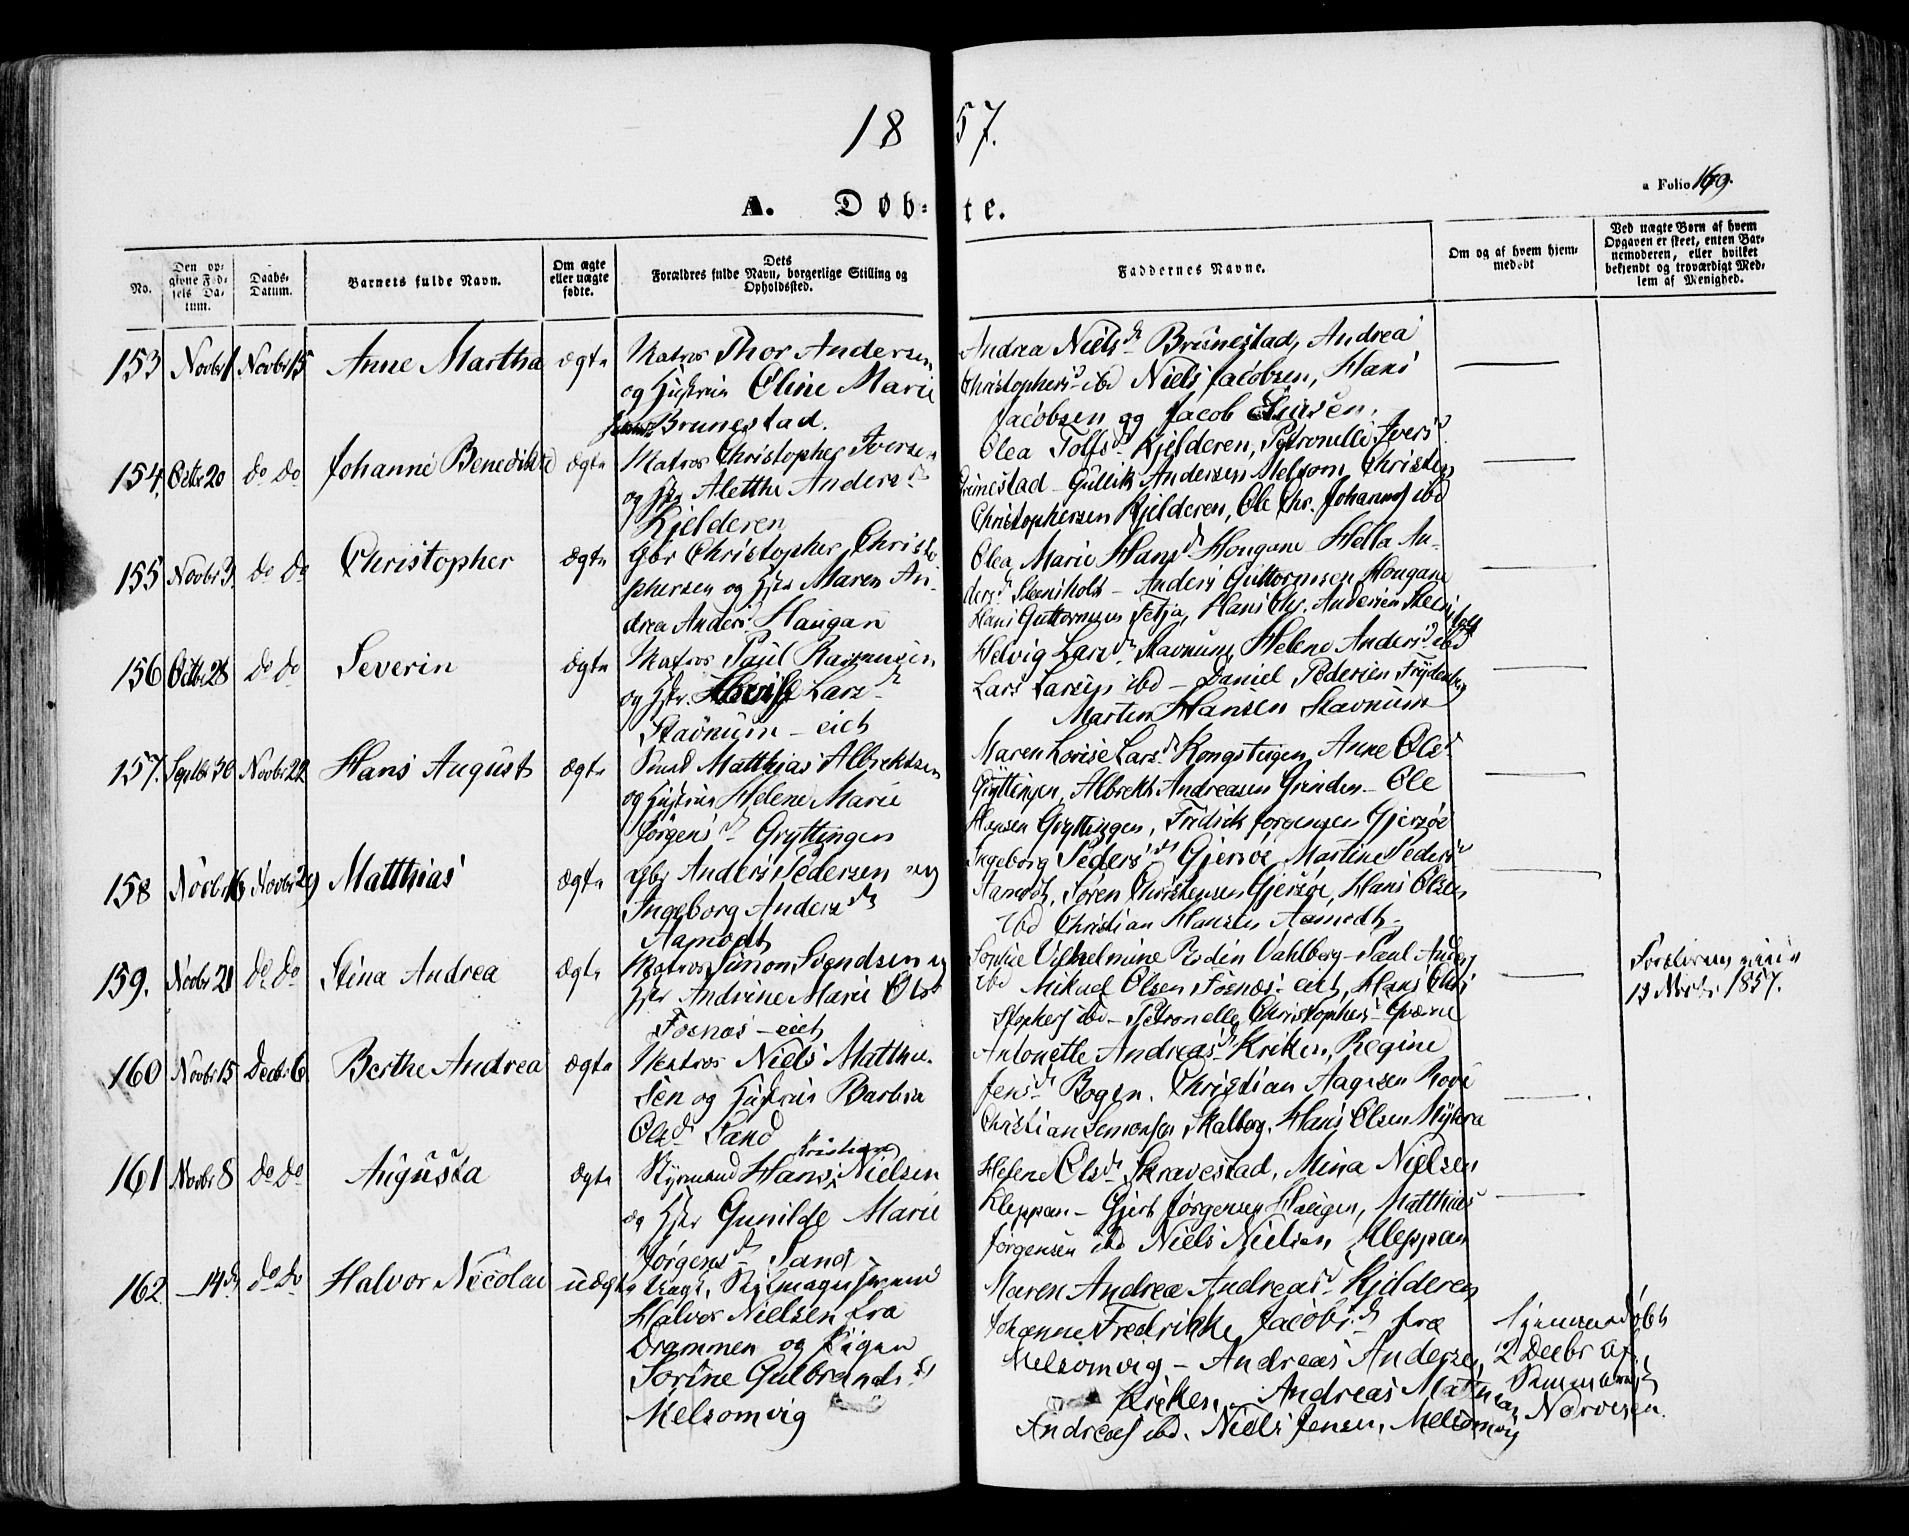 1857.
a Folio 169.
A. Døb- te.
No.
Den op-
givne Fød-
sels Da-
tum.
Daabs-
Datum.
Barnets fulde Navn.
Om ægte
eller uægte
fødte.
Dets
Forældres fulde Navn, borgerlige Stilling og
Opholdssted.
Faddernes Navne.
Om og af hvem hjem-
medøbt
Ved uægte Børn af hvem
Opgaven er skeet, enten Bar-
nemoderen, eller hvilket
bekjendt og troværdigt Med-
lem af Menighed.
153 Novbr 1 Novbr 15 Anne Martha ægte Matros Thor Andersen
og Hustrue Oline Marie
Brunestad.
Andrea Nielsd Brunestad, Andrea
Christophersd ibd Niels Jacobsen, Hans
Jacobsen og Jacob
154. Octbr 20 do do Johanne Benedikte ægte Matros Christopher Iversen
og Hstr Alethe Andersd
Kjelderen
Olea Tolfsd Kjelderen, Petronelle Iversd
Brunestad - Gullik Andersen Melsom, Christen
Christophersen Kjelderen, Ole Chr. Johannes ibd
155 Novbr 3 do do Christopher ægte Gbr Christopher Christo
phersen og Hstr Maren An-
drea Andersd Haugan
Olea Marie Hansd Hougane Hella An-
dersd Steensholt - Anders Guttormsen Hougane
Hans Guttormsen Fetja, Hans Chr. Andersen Steensholt
156 Octbr 28 do do Severin ægte Matros Paul Rasmussen
og Hstr. Larsd
Stavnum - eiet
Helvig Larsd Stavnum, Helene Andersd ibd
Lars Larsen ibd - Daniel Pedersen Frydenberg
Martin Hansen Stavnum
157. Septbr 30 Novbr 22 Hans August ægte Smed Matthias Albrektsen
og Hustrue Helene Marie
Jørgensd Gryttingen
Maren Lovise Larsd Kongsteigen, Anne Olsd
Gryttingen, Albrekt Andreasen Grinden - Ole
Hansen Gryttingen, Fredrik Jørgensen Gjersøe
158 Novbr 16 Novbr 29 Matthias ægte Gbr Anders Pedersen og
Ingeborg Andersd
Aamodt
Ingeborg Pedersd Gjersøe, Martine Pedersd
Aamodt, Søren Christensen Gjersøe, Hans Olsen
ibd Christian Hansen Aamodt -
159. Novbr 21 do do Stina Andrea ægte Matros Simon Svendsen og
Hstr Andrine Marie Olsd
Fosnæs - eiet
Sophie Vilhelmine Bodin Vahlberg - Paul Anders
ibd Mikael Olsen Fosnæs - eiet, Hans Chri
stophers ibd - Petronelle Christophersd Qværne
13 Novbr 1857.
160 Novbr 15 Decbr 6 Berthe Andrea ægte Matros Niels Matthi-
sen og Hustrue Barbra
Olsd Sand
Antonette Andreasd Kriken, Regine
Jensd Bogen. Christian Aagesen Rove
Christian Semonsen Skalberg, Hans Olsen Myhra
161 Novbr 8 do do Augusta ægte Styrmand Hans Kristian Nielsen
og Hstr Gunilde Marie
Jørgensd Sand
Helene Olsd Skravestad, Mina Nielsen
Kleppan - Gjert Jørgensen Haugen, Matthias
Jørgensen ibd Niels Nielsen Kleppan
162 - 14de do do Halvor Nicolai uægte Ungk. Seilmagersvend
Halvor Nielsen fra
Drammen og Pigen
Sorine Gulbrandsd
Melsomvig
Maren Andrea Andreasd Kjelderen
Johanne Fredrikke Jacobsd fra
Melsomvig - Andreas Andersen
Kriken, Andreas
Andreas ibd. Niels Jensen, Melsomvig
Hjemmedøbt
2 Decbr af
Narvesen.